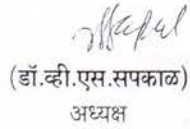 (डॉ.व्ही.एस.सपकाळ)
अध्यक्ष